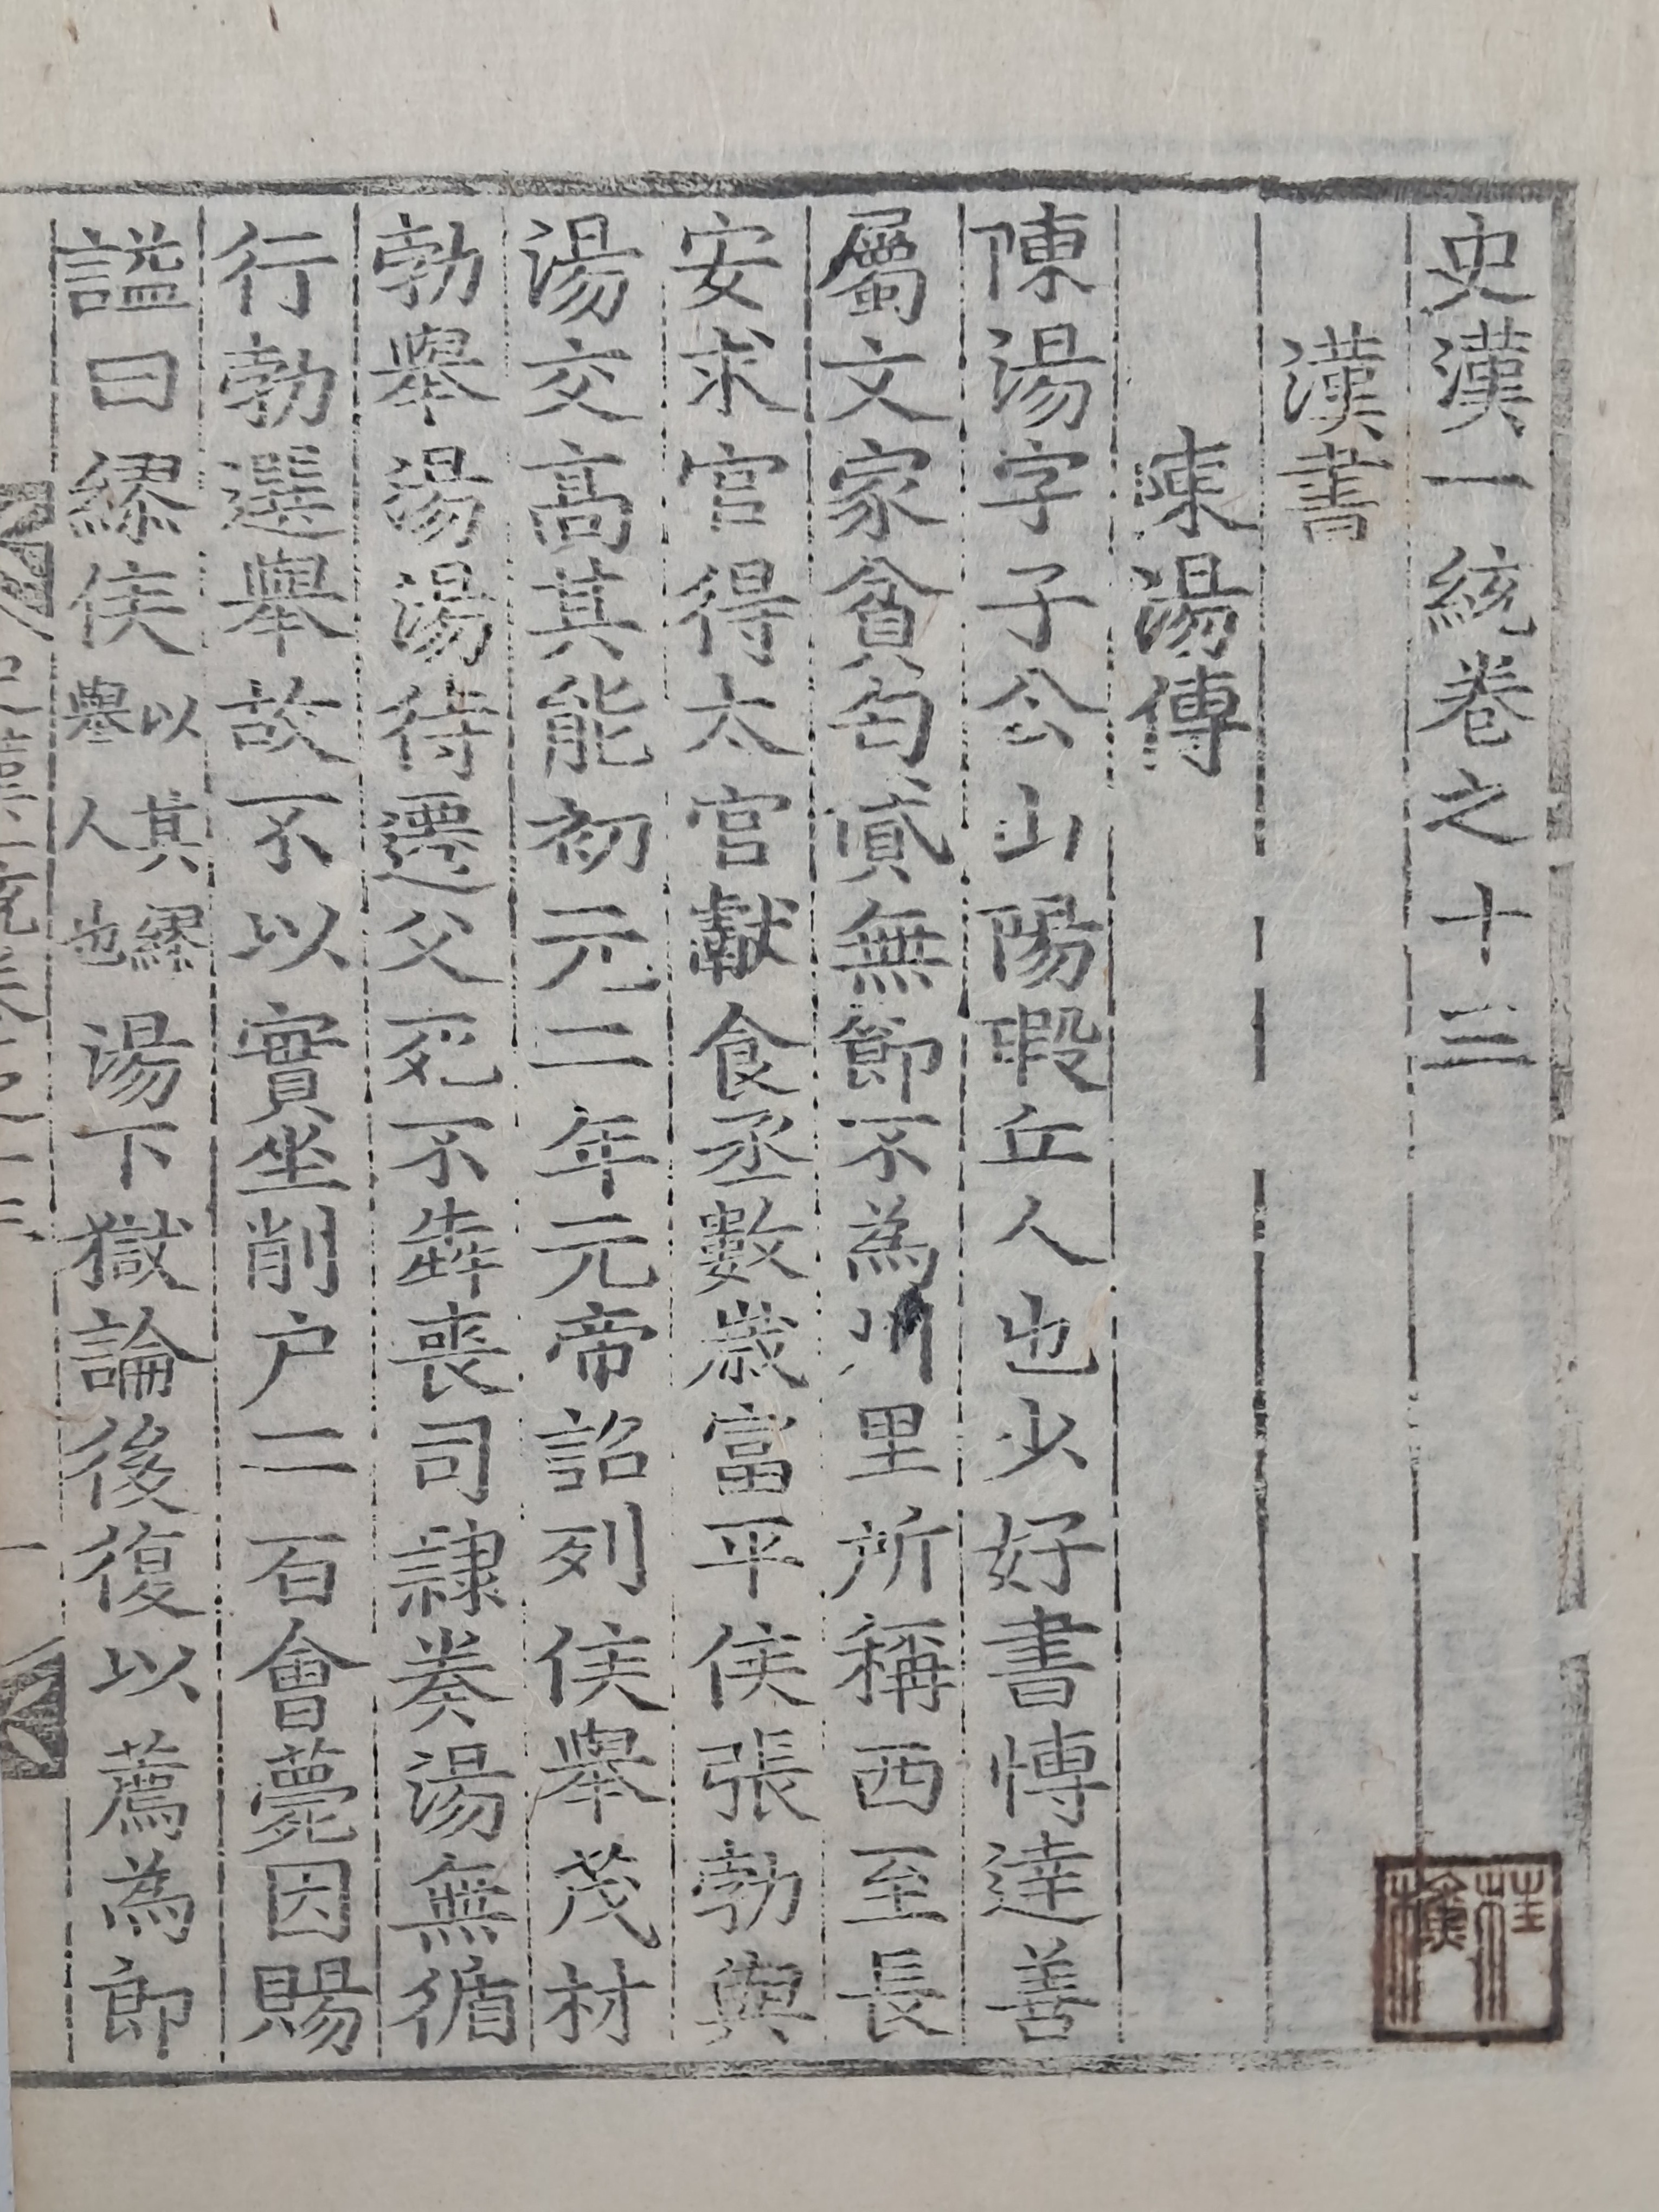 史漢一統卷之十三
漢書
陳湯傳
陳湯字子公山陽瑕丘人也少好書博達善
屬文家貧匄貣無節不為州里所稱西至長
安求官得太官獻食丞數歲富平侯張勃與
湯交高其能初元二年元帝詔列侯舉茂材
勃舉湯湯待遷父死不犇喪司隷奏湯無循
行勃選舉故不以實坐削户二百會薨因賜
謚曰繆侯以其繆舉人也湯下獄論後復以薦為郎